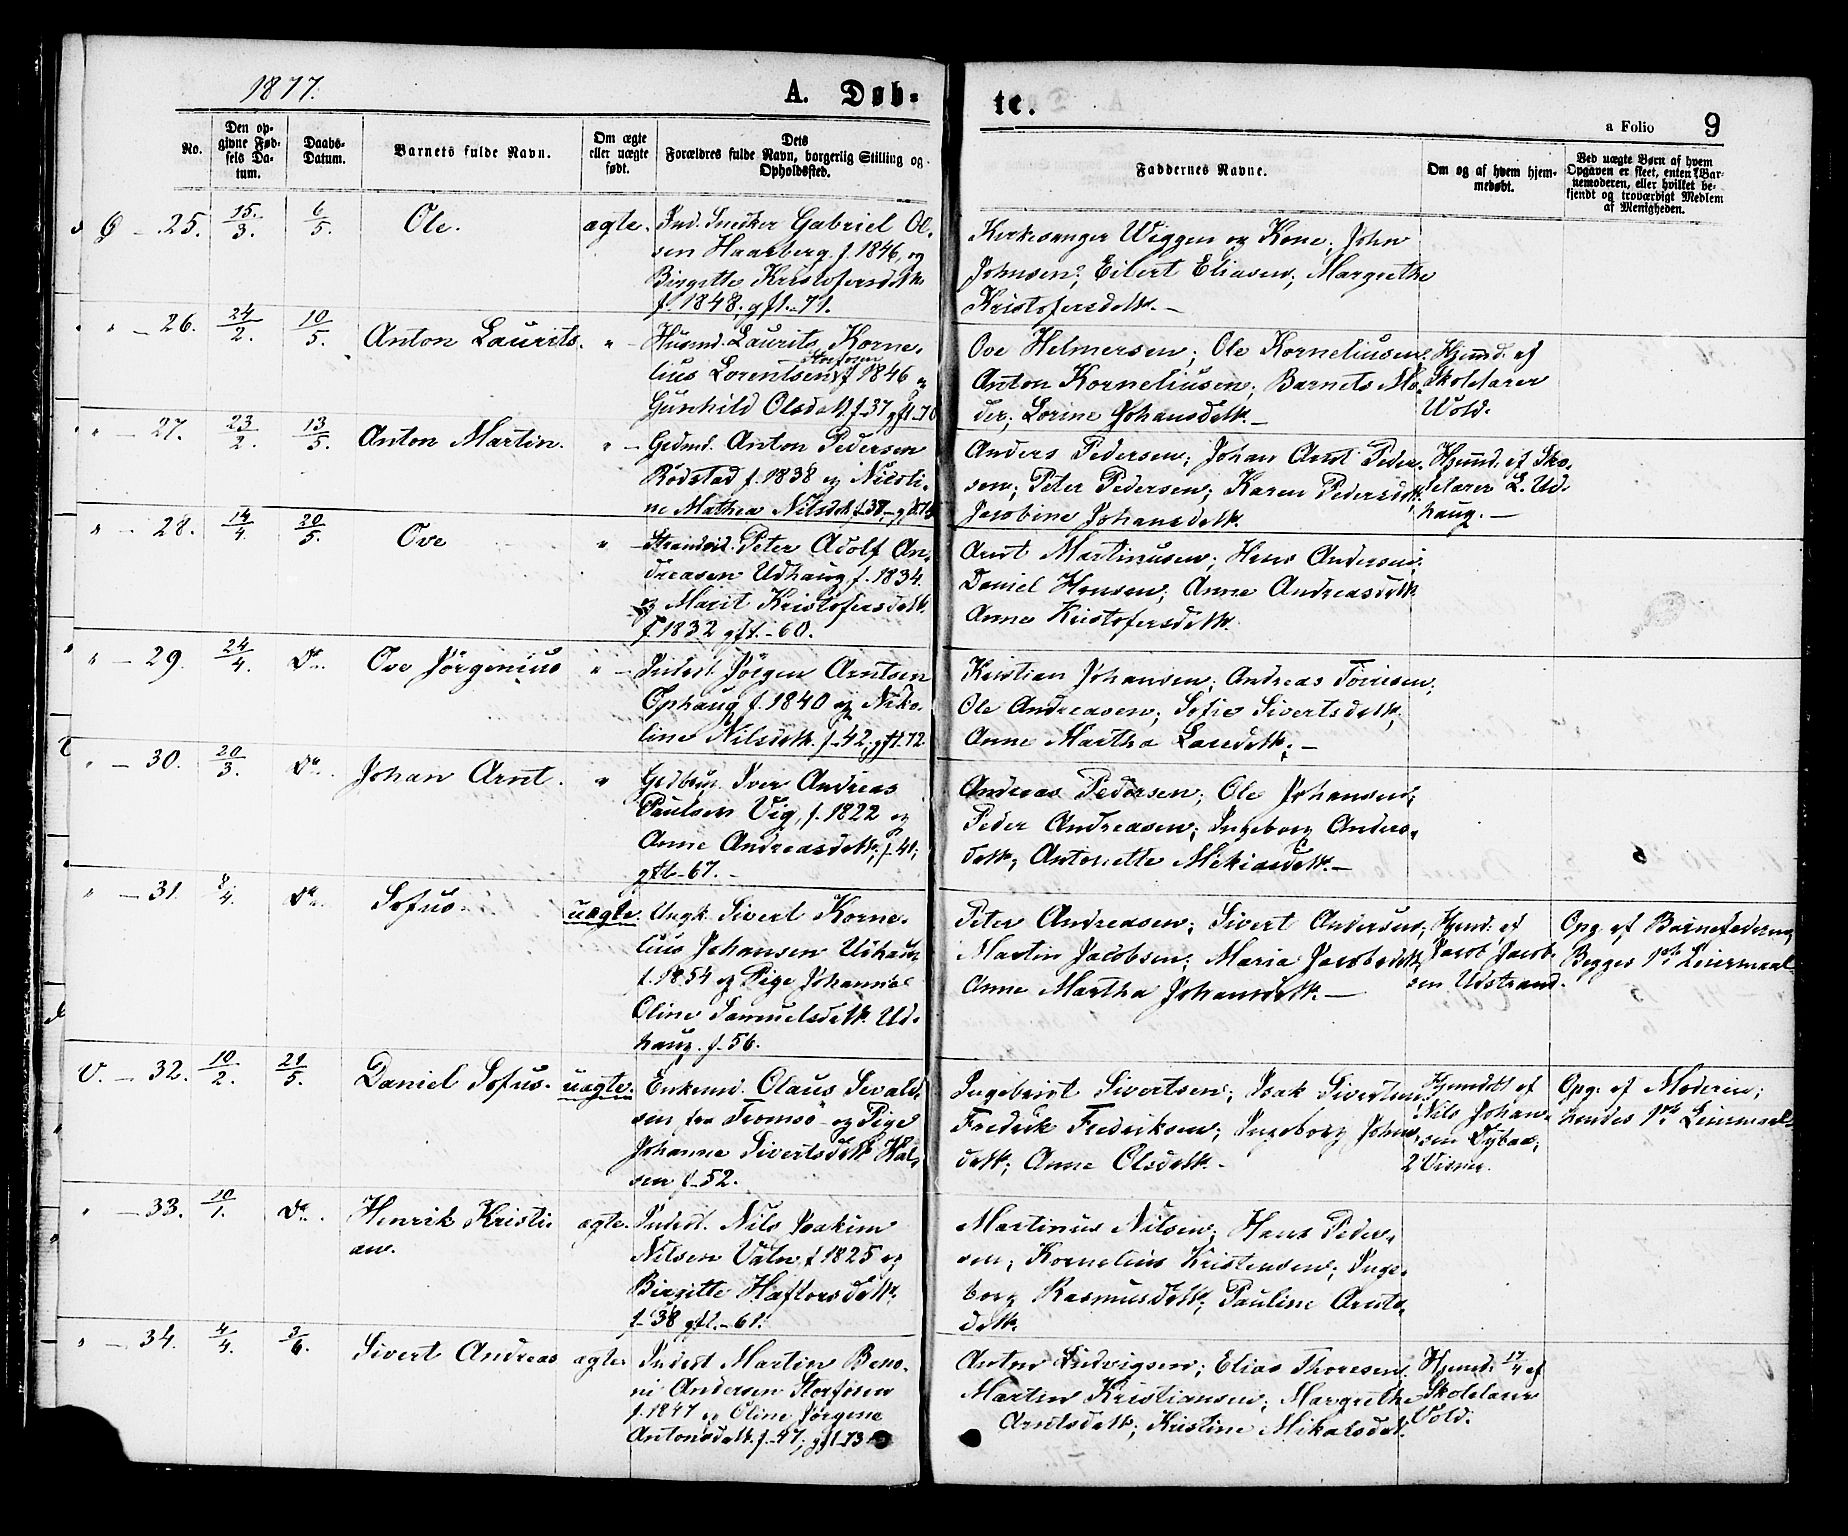 1877.
A. Døb-
te.
a Folio 9
No.
Den op-
givne Fød-
sels Da-
tum.
Daabs-
Datum.
Barnets fulde Navn.
Om ægte
eller uægte
født.
Dets
Forældres fulde Navn, borgerlig Stilling og
Opholdssted.
Faddernes Navne.
Om og af hvem hjem-
medøbt.
Ved uægte Børn af hvem
Opgaven er skeet, enten Bar-
nemoderen, eller hvilket be-
kjendt og troværdigt Medlem
af Menigheden.
Ø - 25. 15/3. 6/5. Ole. ægte.
Ind. Snedker Gabriel Ol-
sen Haarberg f. 1846, og
Birgitte Kristofersdatt.
f. 1848; gft. 71.
Kirkesanger Wiggen og Kone; John
Johnsen; Eilert Eliasen; Margrethe
Kristofersdatt. -
" - 26. 24/2. 10/5. Anton Laurits. "
Husmd. Laurits Korne-
lius Lorentsen Storfosen f 1846 "
Gunhild Olsdatt. f. 37 gft. 70
Ove Helmersen; Ole Korneliusen;
Anton Korneliusen; Barnets Mo-
der; Lorine Johansdatt. -
Hjmd. af
Skolelærer
Wold.
" - 27. 23/2. 13/5. Anton Martin. "
Gdmd. Anton Pedersen
Rødstad f. 1838 og Nicoli-
ne Mathea Nilsdatt. f. 38,
Anders Pedersen; Johan Arnt Peder-
sen; Peter Pedersen; Karen Pedersdatt.
Jacobine Johansdatt.
Hjmd. af Sko-
lelærer L. Ud-
haug. -
" - 28. 14/4. 20/5. Ove "
Strandsid. Peter Adolf An-
dreasen Udhaug f. 1834.
og Marit Kristofersdatt.
f 1832 gft. - 60.
Arnt Martinusen; Hans Andersen;
Daniel Hansen; Anne Andreasdatt.
Anne Kristofersdatt.
" - 29. 24/4. Do. Ove Jørgenius "
Inderst Jørgen Arntsen
Ophaug f. 1840 og Niko-
line Nilsdatt. f. 42, gft. 72.
Kristian Johansen; Andreas Tørrisen;
Ole Andreasen; Sofie Sivertsdatt.
Anne Martha Larsdatt.; -
" - 30. 20/3. Do. Johan Arnt. "
Gdbrug. Iver Andreas
Paulsen Vig, f. 1822 og
Anne Andreasdatt. f. 41;
gft. - 67. -
Andreas Pedersen; Ole Johansen;
Peder Andreasen; Ingeborg Anders-
datt; Antonette Mekiasdatt. -
" - 31. 8/4. Do. Sofus. uægte.
Ungk. Sivert Korne-
lius Johansen Udhaug
f. 1854 og Pige Johanna
Oline Samuelsdatt. Ud-
haug. f. 56.
Peter Andreasen; Sivert Andersen;
Martin Jacobsen; Maria Jacobsdatt.
Anne Martha Johansdatt. -
Hjmd. af
Jacob Jacob-
sen Udstrand.
Opg. af Barnefaderen,
Begges 1ste Leiermaal
V. - 32. 10/2. 21/5. Daniel Sofus. uægte.
Enkemd. Olaus Sevald-
sen fra Tromsø - og Pige
Johanne Sivertsdatt. Hal-
sen f. 52.
Ingebrigt Sivertsen; Isak Sivertsen;
Fredrik Fredriksen; Ingeborg Johns-
datt; Anne Olsdatt. -
Hjemdøbt af
Nils Johan-
sen Dybaa;
2 Vidner.
Opg. af Moderen;
hendes 1ste Leiermaal
" - 33. 10/1. Do. Henrik Kristi-
an. ægte.
Inderst. Nils Joakim
Nilsen Valn f 1825 og
Birgitte Haftorsdatt.
f. 38 gft. - 61.
Martinus Nilsen; Hans Peder-
sen; Kornelius Kristensen; Inge-
borg Rasmusdatt; Pauline Arnts-
datt.
" - 34. 4/4. 3/6. Sivert Andreas ægte
Inderst Martin Beno-
ni Andersen Storfosen
f. 1847 og Oline Jørgine
Antonsdatt. f. 47; gft. 73
Anton Ludvigsen; Elias Thoresen
Martin Kristiansen; Margrethe
Arntsdatt; Kristine Mikalsdat.
Hjmd. 17/4 af
Skolelærer
Vold.